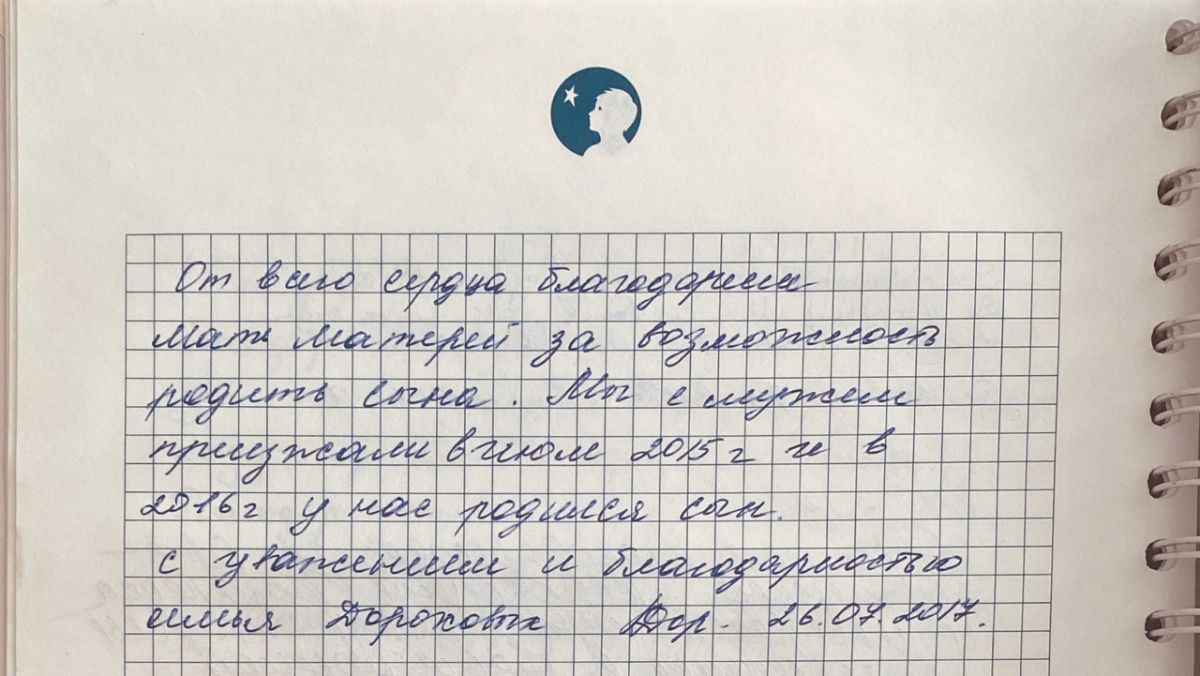 От всего сердца благодарим
Мать Матерей за возможность
родить сына. Мы с мужем
приезжали в июле 2015г и в
2016г у нас родился сын.
С уважением и благодарностью
семья Дороховых Дор. 26.07.2017.